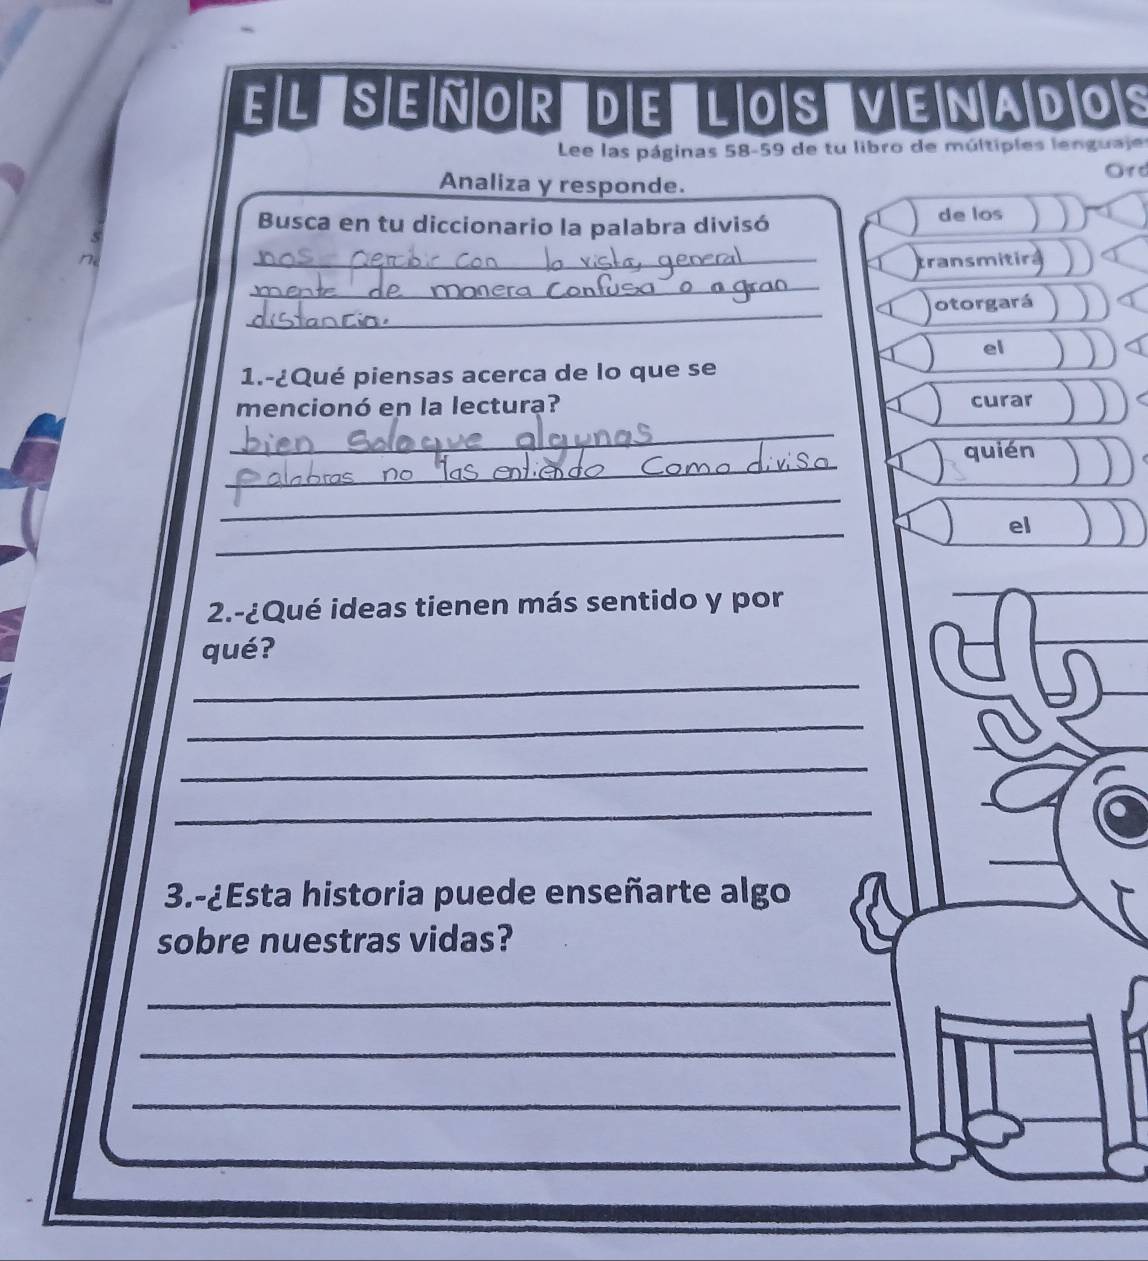 EL SEÑOR DE LOS VENADOS
Lee las páginas 58-59 de tu libro de múltiples lenguaje
Ord
Analiza y responde.
Busca en tu diccionario la palabra divisó
percibir con la vista, general
mente de manera confusa o a gran
distancia.
1.-¿Qué piensas acerca de lo que se
mencionó en la lectura?
bien solo que algunas
palabras no las entiendo como diviso
2.-¿Qué ideas tienen más sentido y por
qué?
3.-¿Esta historia puede enseñarte algo
sobre nuestras vidas?
de los
transmitirá
otorgará
el
curar
quién
el